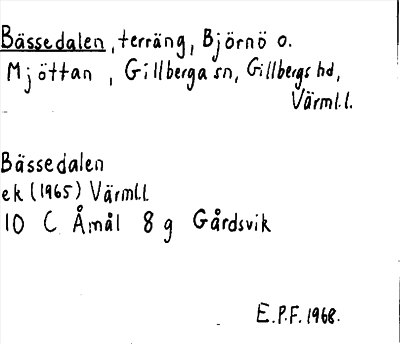 Bässedalen, terräng, Björnö o.
Mjöttan, Gillberga sn, Gillbergs hd,
Värml.l.
Bässedalen
ek (1965) Värml.l
10 C Åmål 8 g Gårdsvik
E.P.F. 1968.